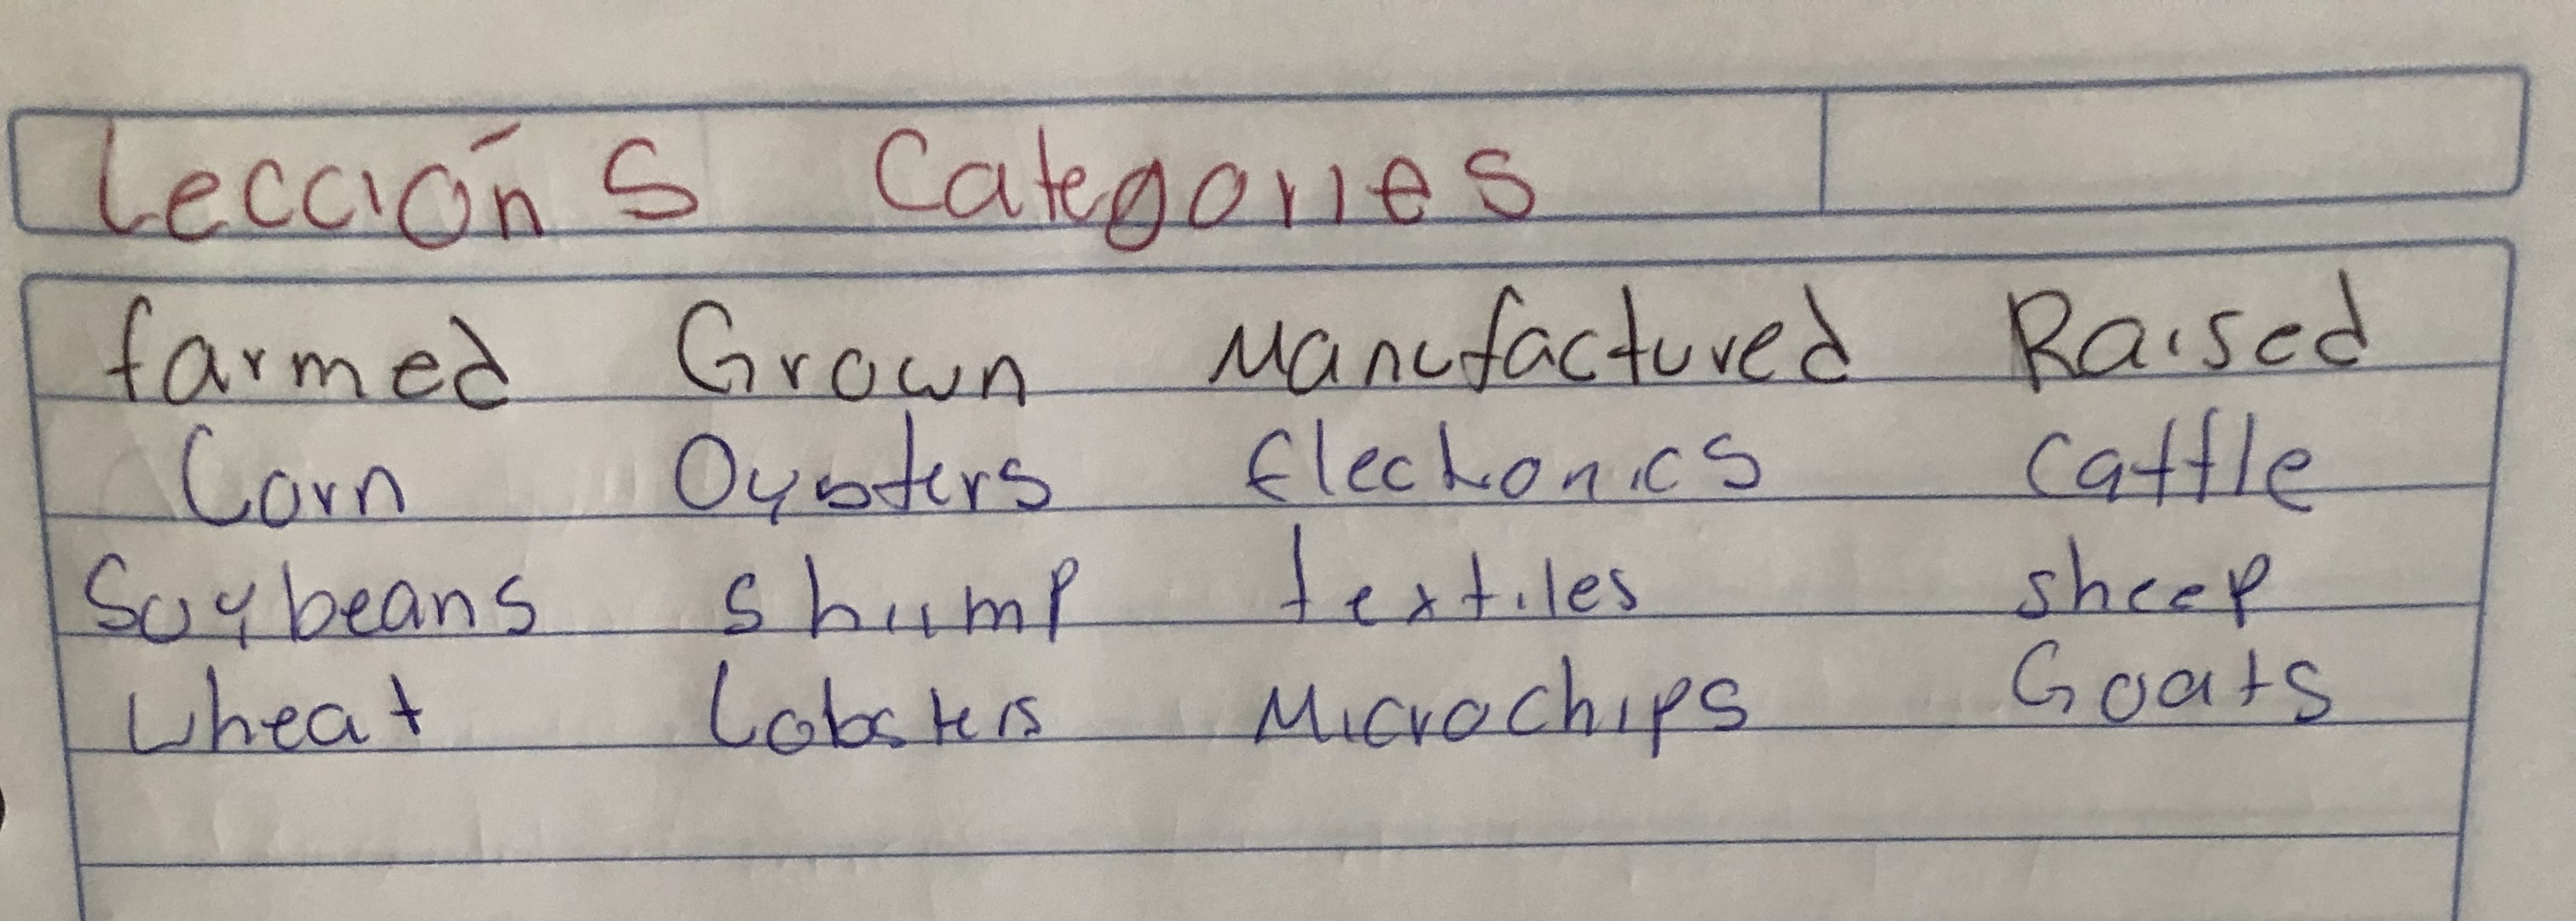 Lección 5 Categories
farmed Grown Manufactured Raised
Corn Oysters Electronics Cattle
Soybeans shrimp textiles sheep
Wheat Lobsters Microchips Goats